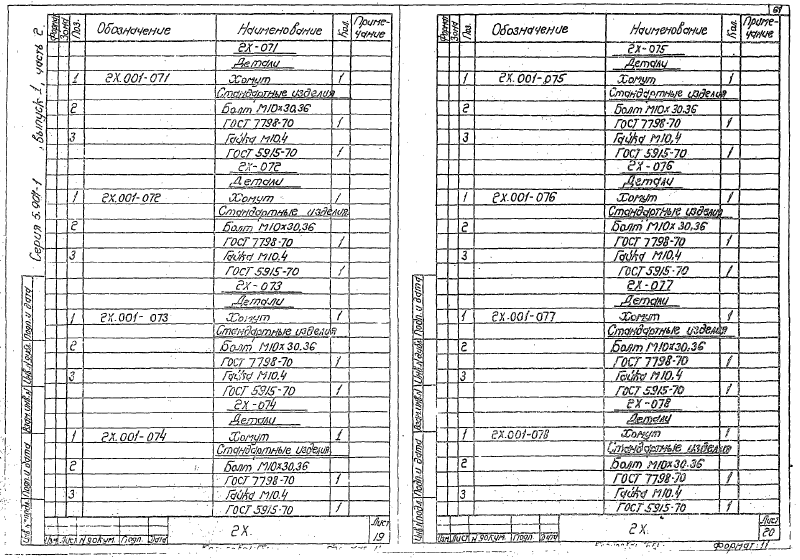 61
Серия 5.901-1 , выпуск 1, часть 2.
Формат Зона Поз. Обозначение Наименование Кол. Приме-
чание
2Х-071
Детали
1 2Х.001-071 Хомут 1
Стандартные изделия
2 Болт М10×30.36
ГОСТ 7798-70 1
3 Гайка М10.4
ГОСТ 5915-70 1
2Х-072
Детали
1 2Х.001-072 Хомут 1
Стандартные изделия
2 Болт М10×30.36
ГОСТ 7798-70 1
3 Гайка М10.4
ГОСТ 5915-70 1
2Х-073
Детали
1 2Х.001-073 Хомут 1
Стандартные изделия
2 Болт М10×30.36
ГОСТ 7798-70 1
3 Гайка М10.4
ГОСТ 5915-70 1
2Х-074
Детали
1 2Х.001-074 Хомут 1
Стандартные изделия
2 Болт М10×30.36
ГОСТ 7798-70 1
3 Гайка М10.4
ГОСТ 5915-70 1
Инв.№подл. Подп. и дата Взам.инв.№ Инв.№дубл. Подп. и дата
Изм. Лист № докум. Подп. Дата
2Х.
Лист
19
Формат Зона Поз. Обозначение Наименование Кол. Приме-
чание
2Х-075
Детали
1 2Х.001-075 Хомут 1
Стандартные изделия
2 Болт М10×30.36
ГОСТ 7798-70 1
3 Гайка М10.4
ГОСТ 5915-70 1
2Х-076
Детали
1 2Х.001-076 Хомут 1
Стандартные изделия
2 Болт М10×30.36
ГОСТ 7798-70 1
3 Гайка М10.4
ГОСТ 5915-70 1
2Х-077
Детали
1 2Х.001-077 Хомут 1
Стандартные изделия
2 Болт М10×30.36
ГОСТ 7798-70 1
3 Гайка М10.4
ГОСТ 5915-70 1
2Х-078
Детали
1 2Х.001-078 Хомут 1
Стандартные изделия
2 Болт М10×30.36
ГОСТ 7798-70 1
3 Гайка М10.4
ГОСТ 5915-70 1
Инв.№подл. Подп. и дата Взам.инв.№ Инв.№дубл. Подп. и дата
Изм. Лист № докум. Подп. Дата
2Х.
Лист
20
Формат 11